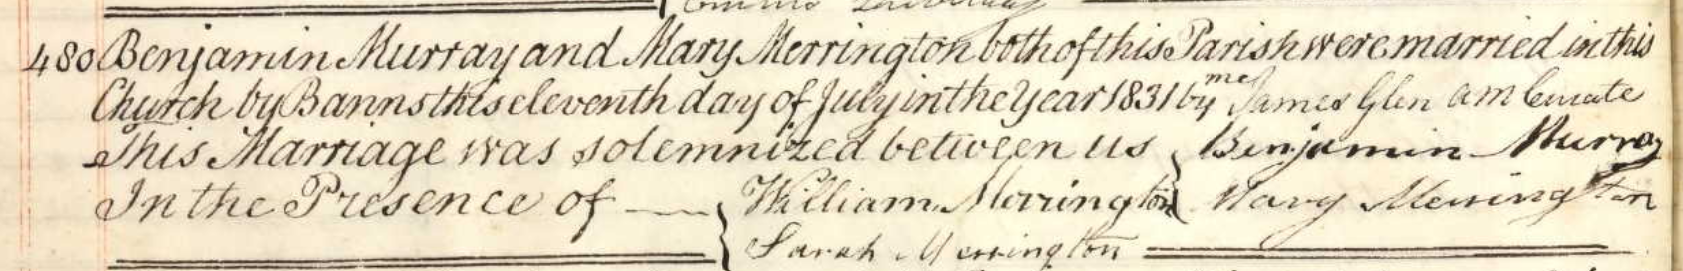 480 Benjamin Murray and Mary Merrington both of this Parish were married in this
Church by Banns this eleventh day of July in the Year 1831 by me James Glen am Curate
This Marriage was solemnized between us { Benjamin Murray
In the Presence of { William Merrington { Mary Merrington
Sarah Merrington